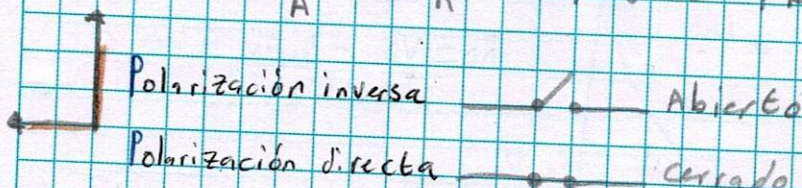 A
Polarización inversa Abierto
Polarización directa cerrado